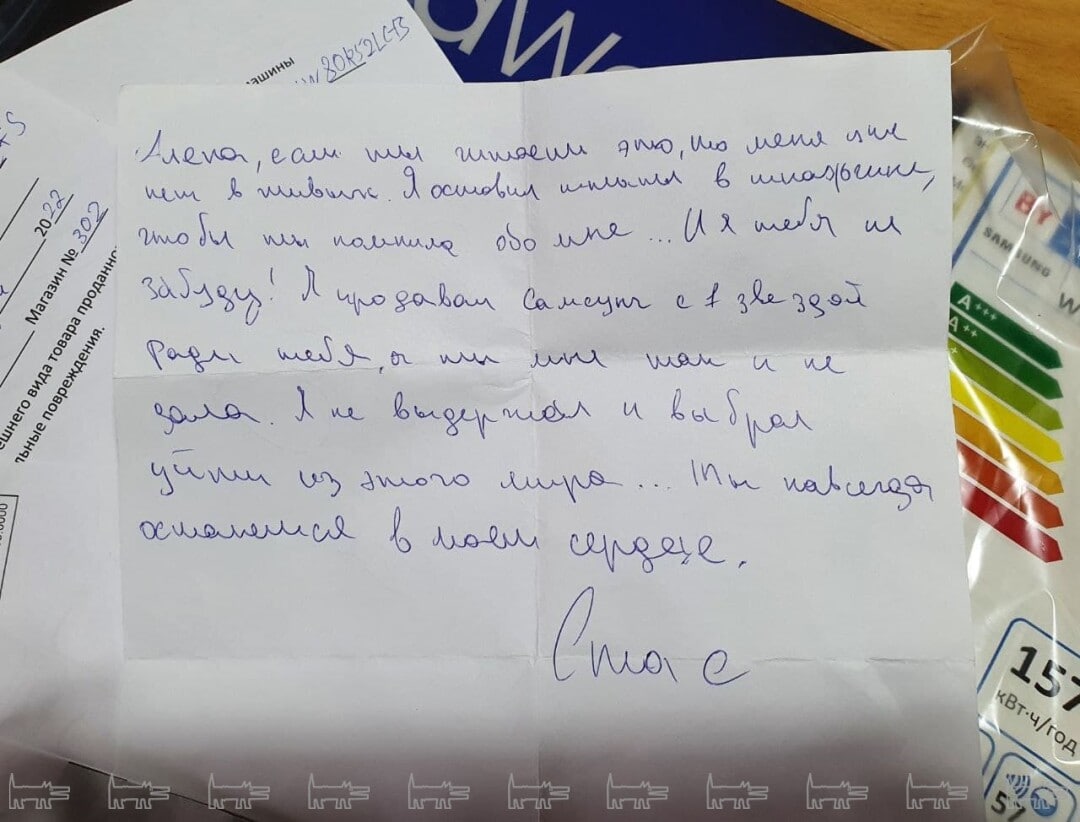 ашины
WW80R52LCFB
2022
Магазин № 302
ешнего вида товара проданно
льные повреждения.
Алена, если ты читаешь это, то меня уже
нет в живых. Я оставил шланги в
чтобы ты помнила обо мне... И я тебя не
забуду! Я продавал Самсунг с 1 звездой
ради тебя, а ты мне так и не
дала. Я не выдержал и выбрал
уйти из этого мира... Ты навсегда
останешься в моем сердце.
Стас
BY
SAMSUNG
W
A+++
A++
157
кВт·ч/год
57